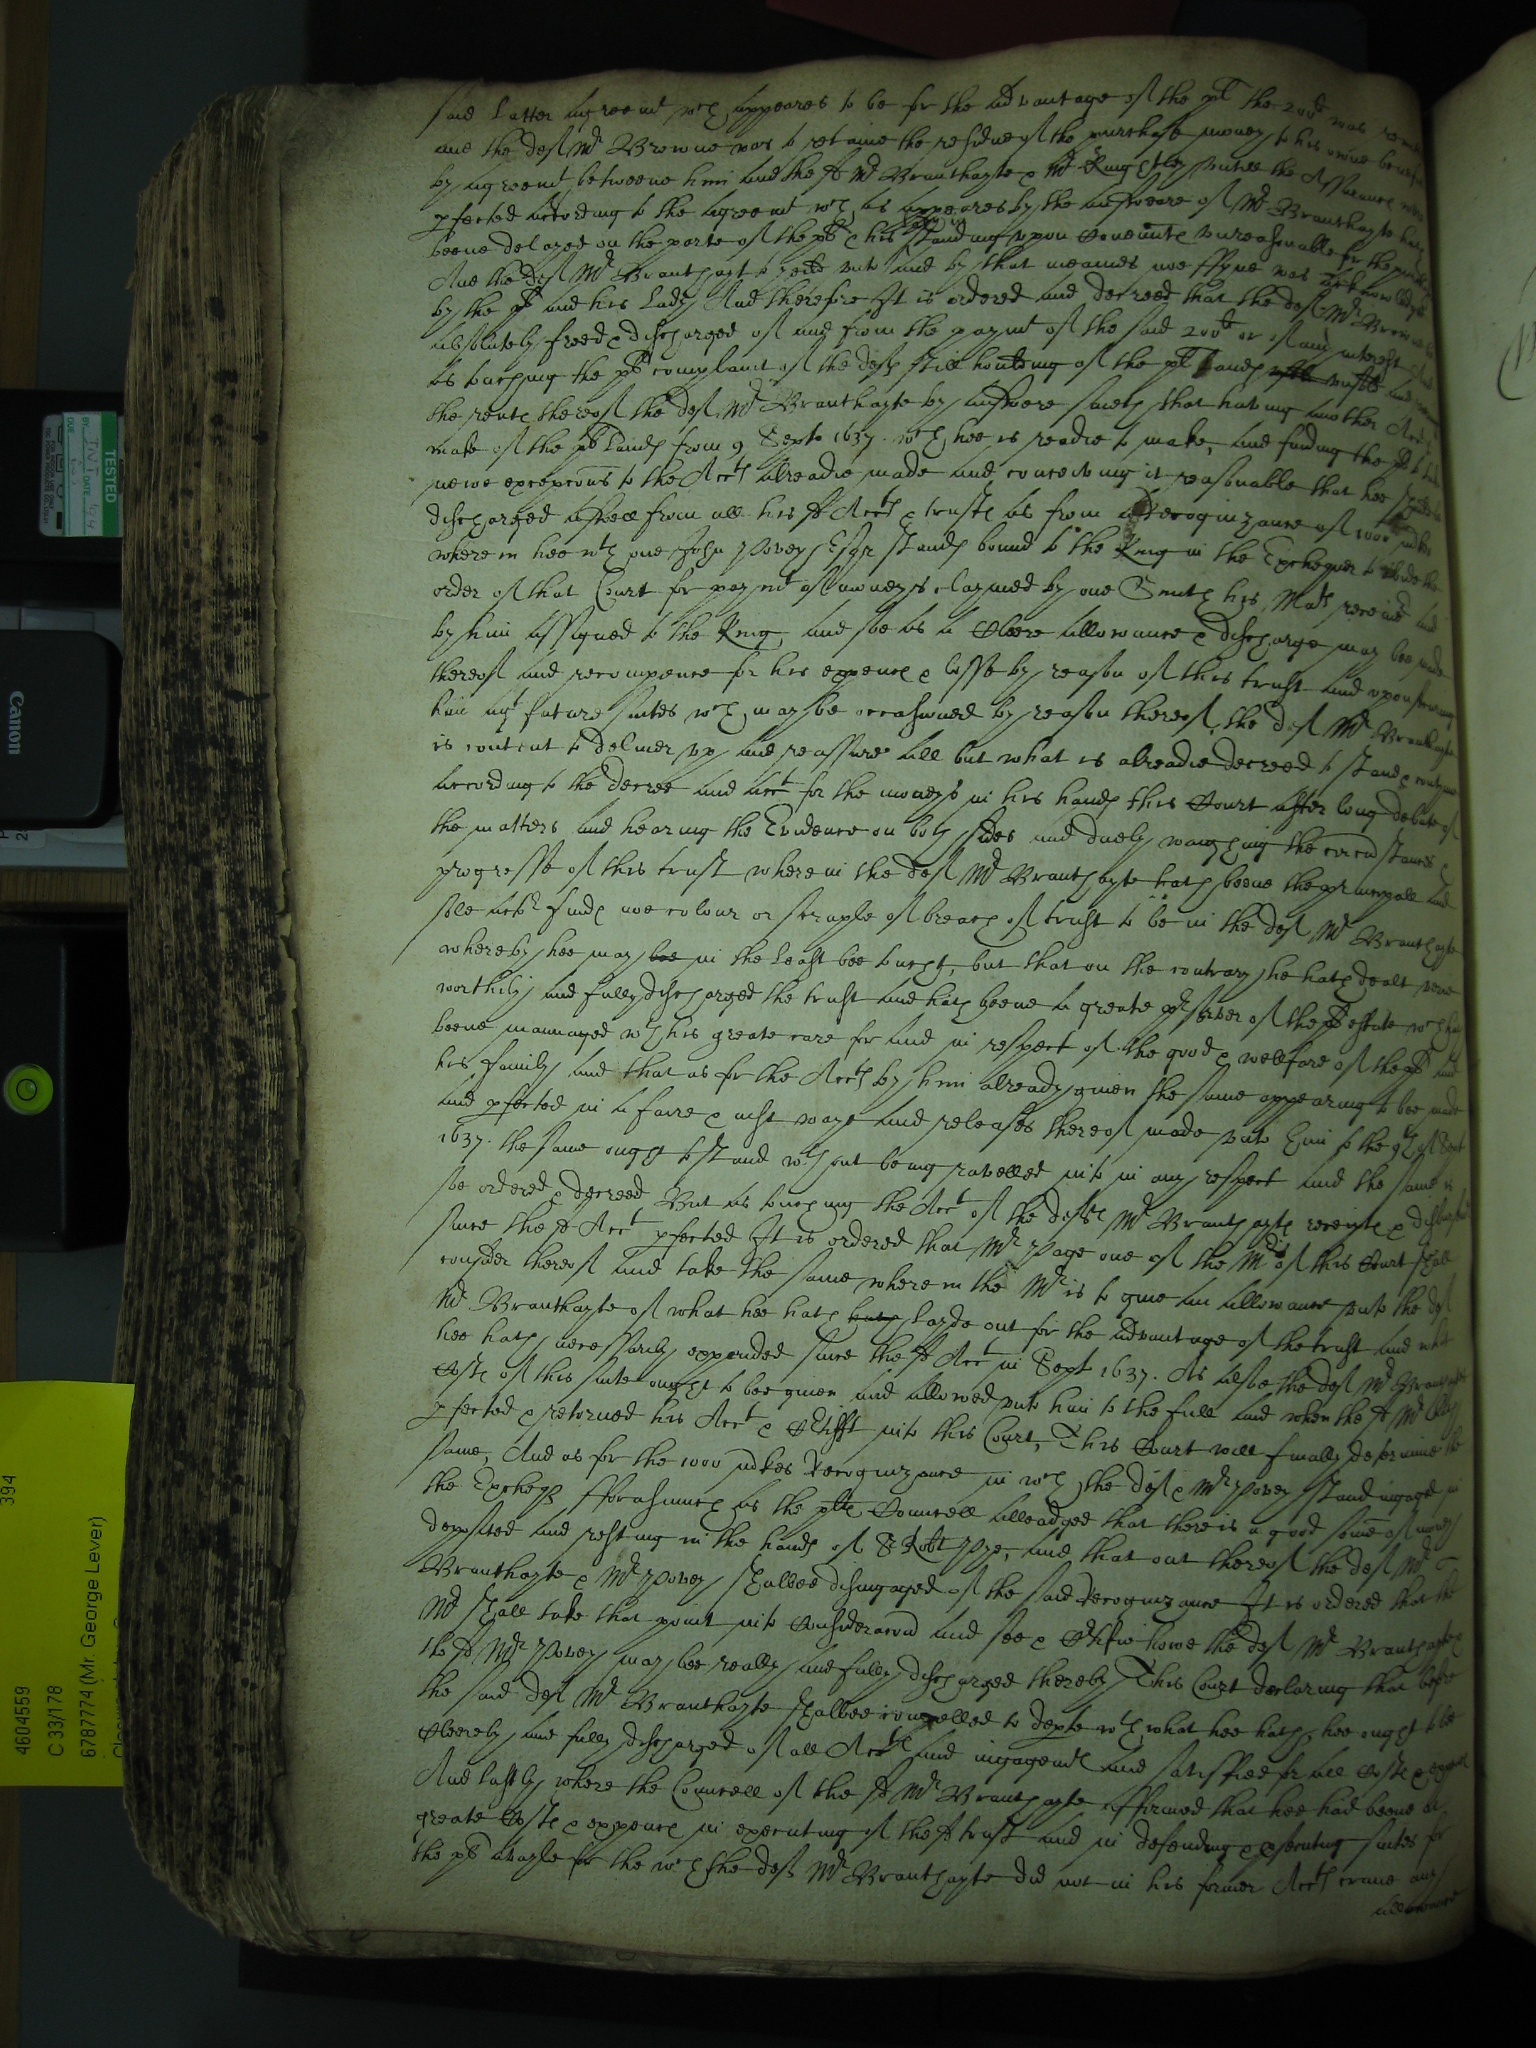 said latter agreemt wch appeares to be for the advantage of the plt the 200li was
and the deft Mr Browne was to retaine the residue of the purchase money to his owne
by agreemt betweene him and the sd Mr Branthayte & Mr untill the Assurance were
pfected according to the agreemt wch as appeares by the answeare of Mr Branthayte hath
beene delayed on the parte of the plt & his Lady in standing upon Covenntes unreasonable for the
And the deft Mr Branthayt to yeild unto and by that meanes noe ffyne was acknowledged
by the plt and his Lady And therefore It is ordered and decreed that the deft Mr Browne
absolutely freed & discharged of and from the paymt of the said 200li or of any interest
As touching the plts complaint of the defts still houlding of the plts Lands
the rents thereof the deft Mr Branthayte by answere saieth that having another Acct to
make of the plts Lands from 9 Septr 1637. wch hee is readie to make, and finding the plt to take
newe excepcons to the Accts alreadie made and conceiving it reasonable that hee should be
discharged aswell from all his sd Accts & trusts as from a Recognizance of 1000 mrkes
wherein hee wth one John Povey Esqr stands bound to the King in the Exchequer to abide the
order of that Court for paymt of moneys claymed by one Smith his Mats receivr and
by him assigned to the King, and soe as a Cleere allowance & discharge may bee made
thereof and recompence for his expence & losse by reason of this trust and upon securing
him agt future suites wch may be occasioned by reason thereof, the deft Mr Branthayte
is content to deliver up and reassure all but what is alreadie decreed to stand &
according to the decree and acct for the moneys in his hands this Court after long debate of
the matters and hearing the Evidence on both sides and duely waighing the circumstances &
progresse of this trust wherein the deft Mr Branthayte hath beene the principall and
sole actor finds noe colour or scruple of breach of trust to be in the deft Mr Branthayte
whereby hee may bee in the least bee toucht, but that on the contrary he hath dealt verie
worthily and fully discharged the trust and hath beene a greate pserver of the plts estate wch hath
beene mannaged wth his greate care for and in respect of the good & wellfare of the plt and
his family and that as for the Accts by him already given the same appearing to bee made
and pfected in a faire & just waye and releases thereof made unto him to the 9th of Sept
1637. the same ought to stand wthout being ravelled into in any respect and the same is
soe ordered & decreed But as touching the Acct of the defts Mr Branthayts receipts &
since the sd Acct pfected It is ordered that Mr Page one of the Mrs of this Court shall
consider thereof and take the same wherein the Mr is to give an allowance unto the deft
Mr Branthayte of what hee hath hath layde out for the advantage of the trust and what
hee hath necessarily expended since the sd Acct in Sept 1637. As alsoe the deft Mr Branthayts
Costs of this suite ought to bee given and allowed unto him to the full and when the sd Mr hath
pfected & retorned his Acct & Certifft into this Court, This Court will finally determine the
same, And as for the 1000 mrkes Recognizance in wch the deft & Mr Povey stand ingaged in
the Excheqr fforasmuch as the plts Councell alleadged that there is a good some of money
deposited and resting in the hands of Sr Robt Pye, and that out thereof the deft Mr
Branthayte & Mr Povey shalbee disingaged of the said Recognizance It is ordered that the
Mr shall take that point into Consideracon and see & Certifie howe the deft Mr Branthayte &
the sd Mr Povey may bee really and fully discharged thereby This Court declaring that before
the said deft Mr Branthayte shalbee compelled to depte wth what hee hath, hee ought to be
Cleerely and fully discharged of all Accts and ingagemts and satisffied for all Costs &
And lastly where the Councell of the sd Mr Branthayte affirmed that hee had beene at
greate Costs & expence in executing of the sd trust and in defending & psecuting suites for
the plts avayle for the wch the deft Mr Branthayte did not in his former Accts crave any
allowance
TESTED
Canon
394
4604559
C 33/178
6787774 (Mr. George Lever)